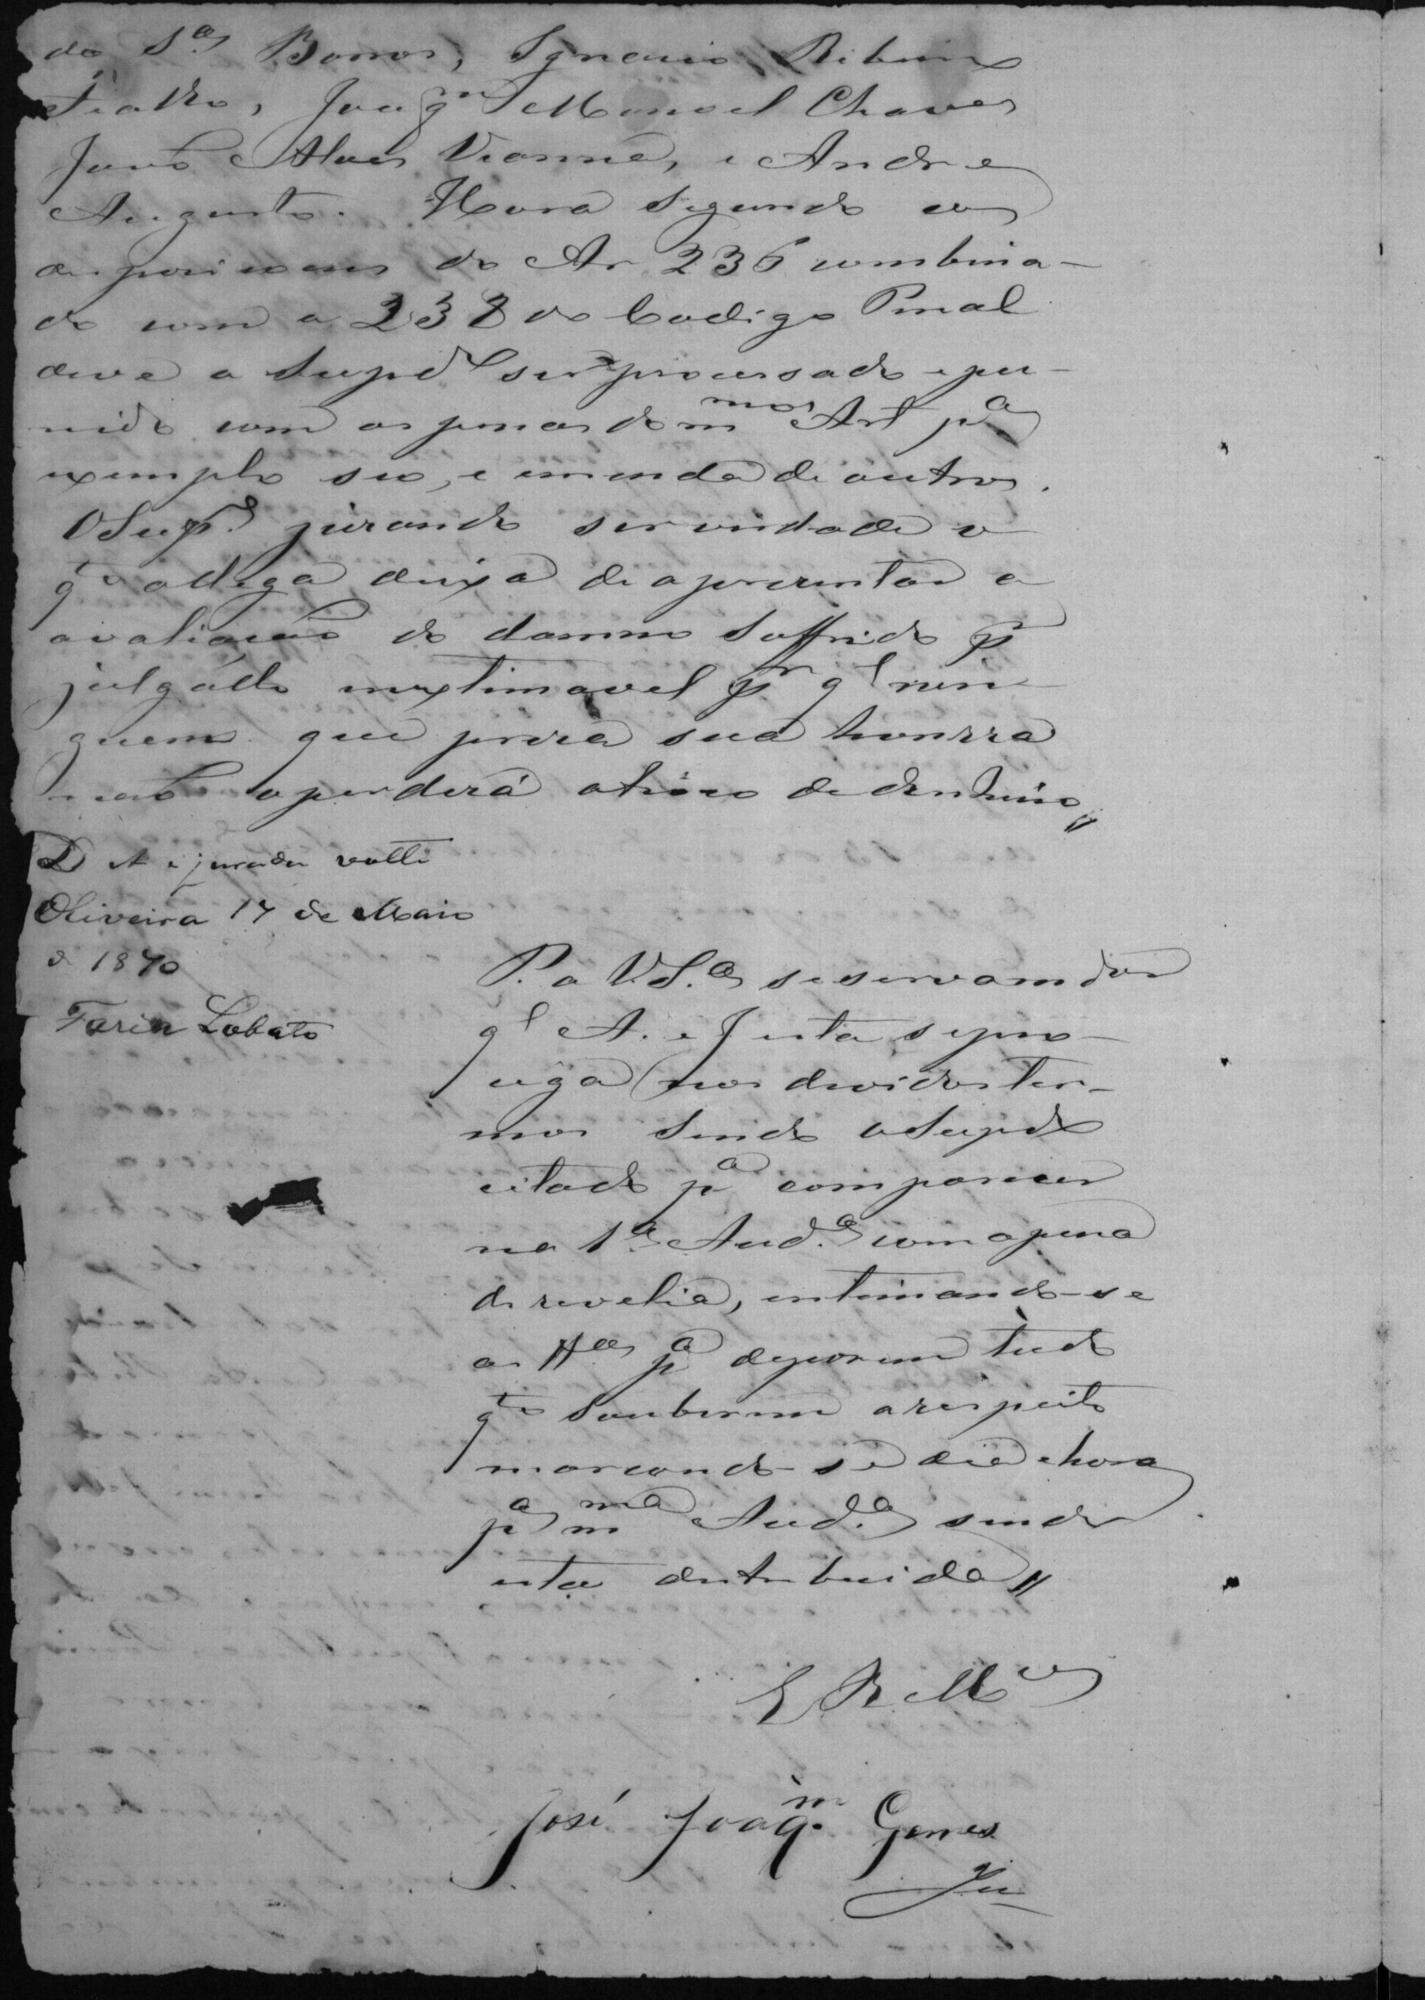 de S.ª Barros, Ignacio Ribeiro
Joaq.m Manoel Chaves
João Alves Vianna, e Andre
Augusto. Hora segundo as
desposicoens do Ar 236 combina-
do com o 238 do Codigo Penal
deve o Supd.º ser processado e pu-
nido com as penas do mmos Art p.ª
exemplo seu, e emenda de outros.
O Sup.e jurando ser verdade o
q' allega deixa de aprezentar a
avaliação do damno soffrido p.r
julgállo inextimavel p.r q' nin-
guem que préza sua honrra
não a perderá a troco de dinheiro //
D A e jurada volte
Oliveira 17 de Maio
de 1870
Faria Lobato
P. a V.S.ª se servam dar
q' A. e Justa se pro-
ceda nos devidos ter-
mos sendo o Supd.º
citado p.ª comparecer
na 1.ª Aud.ª com a pena
de revelia, intimando-se
as ttas p.ª deporem tudo
q.to souberem a respeito
marcando-se dia e hora
p.ª mma Aud.ª sendo
esta destribuida //
E R M.ce
José Joaq.m Gomes